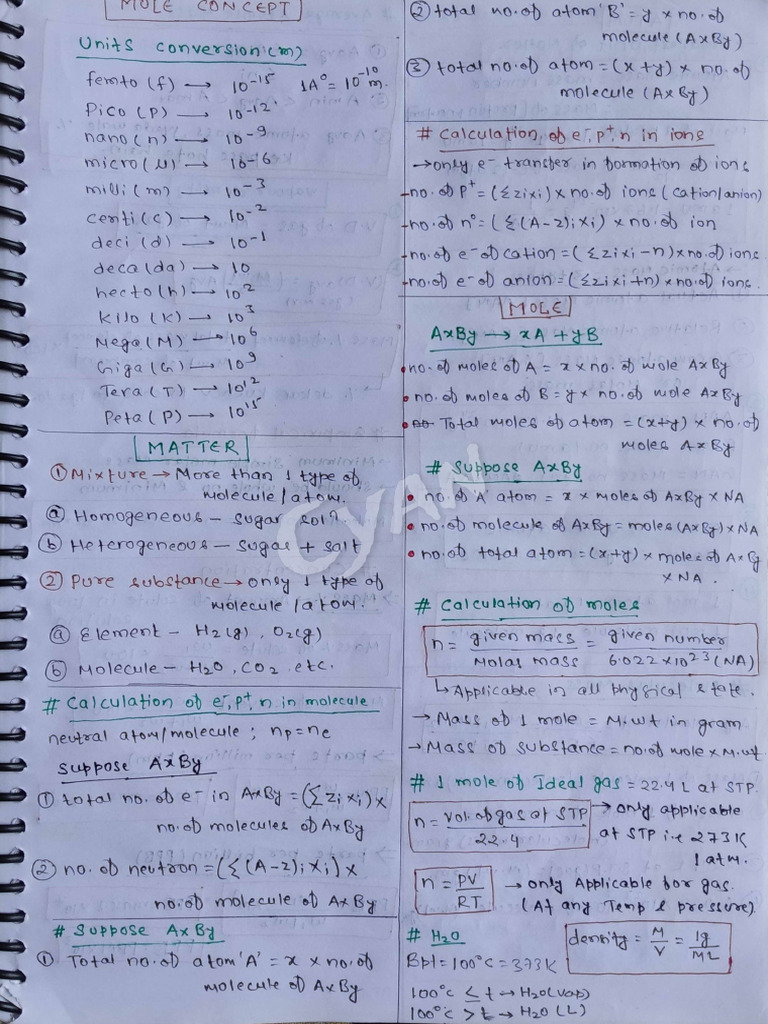 MOLE CONCEPT
Units conversion(m)
femto (f) → 10⁻¹⁵
1A° = 10⁻¹⁰ m.
Pico (P) → 10⁻¹²
nano (n) → 10⁻⁹
micro (u) → 10⁻¹⁶
milli (m) → 10⁻³
centi (c) → 10⁻²
deci (d) → 10⁻¹
deca (da) → 10
hecto (h) → 10²
Kilo (K) → 10³
Mega (M) → 10⁶
Giga (G) → 10⁹
Tera (T) → 10¹²
Peta (P) → 10¹⁵
MATTER
① Mixture → More than 1 type of
molecule / atom.
ⓐ Homogeneous - sugar solⁿ.
ⓑ Heterogeneous - sugar + salt
② Pure substance → only 1 type of
molecule / atom.
ⓐ Element - H₂(g), O₂(g)
ⓑ Molecule - H₂O, CO₂ . etc.
# Calculation of e⁻, p⁺, n in molecule
neutral atom/molecule ; np = ne
suppose AxBy
① total no. of e⁻ in AxBy = (Σzixi) ×
no. of molecules of AxBy
② no. of neutron = (Σ(A-z)i xi) ×
no. of molecule of AxBy
# Suppose AxBy
① Total no. of atom 'A' = x × no. of
molecule of AxBy
② total no. of atom 'B' = y × no. of
molecule (AxBy)
③ total no. of atom = (x+y) × no. of
molecule (AxBy)
# Calculation of e⁻, p⁺, n in ions
→ only e⁻ transfer in formation of ions
- no. of p⁺ = (Σzixi) × no. of ions (cation/anion)
- no. of n° = (Σ(A-z)i xi) × no. of ion
- no. of e⁻ of cation = (Σzixi-n) × no. of ions.
- no. of e⁻ of anion = (Σzixi+n) × no. of ions.
MOLE
AxBy → xA + yB
• no. of moles of A = x × no. of mole AxBy
• no. of moles of B = y × no. of mole AxBy
• Total moles of atom = (x+y) × no. of
moles AxBy
# Suppose AxBy
• no. of 'A' atom = x × moles of AxBy × NA
• no. of molecule of AxBy = moles (AxBy) × NA
• no. of total atom = (x+y) × moles of AxBy
× NA.
# Calculation of moles
n = given mass / Molas mass = given number / 6.022×10²³ (NA)
↳ Applicable in all physical state.
→ Mass of 1 mole = M.wt in gram
→ Mass of substance = no. of mole × M.wt
# 1 mole of Ideal gas = 22.4 L at STP.
n = vol. of gas at STP / 22.4 → only applicable
at STP i.e 273K
1 atm.
n = PV / RT → only Applicable for gas.
(At any Temp & pressure)
# H₂O
density = M / V = 1g / mL
Bpt = 100°C = 373K
100°C ≤ t → H₂O(vap)
100°C > t → H₂O(L)
CYAN